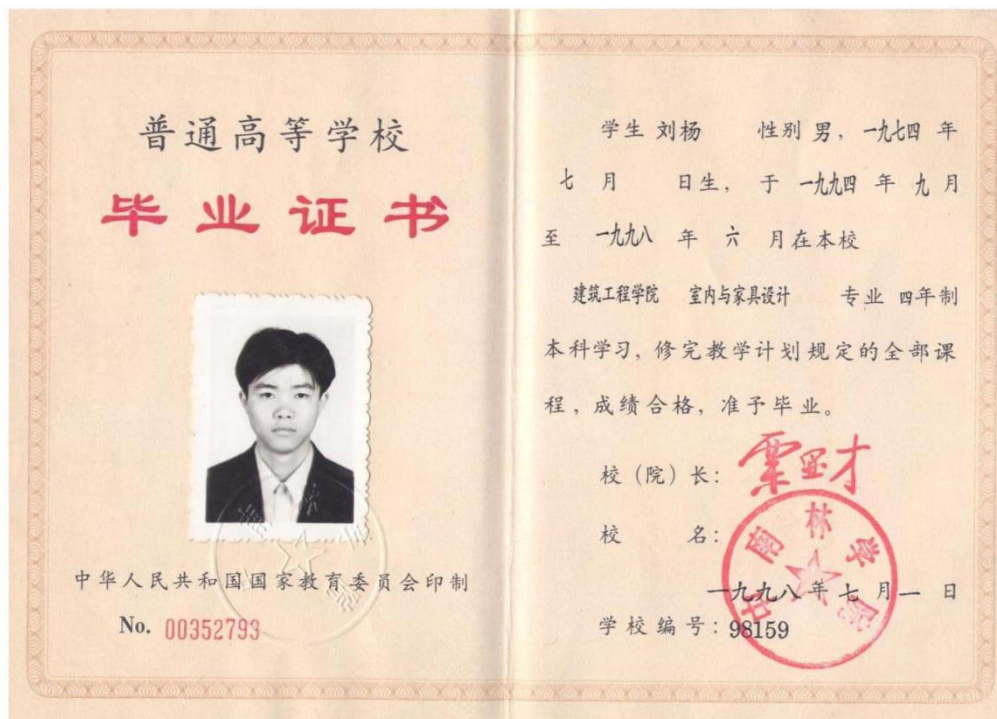 普通高等学校
毕业证书
中华人民共和国国家教育委员会印制
No. 00352793
学生 刘杨 性别 男, 一九七四 年
七 月 日生, 于 一九九四 年 九 月
至 一九九八 年 六 月在本校
建筑工程学院 室内与家具设计 专业 四年制
本科学习, 修完教学计划规定的全部课
程, 成绩合格, 准予毕业。
校 (院) 长:
校 名:
中南林学院
一九九八 年 七 月 一 日
学校编号: 98159